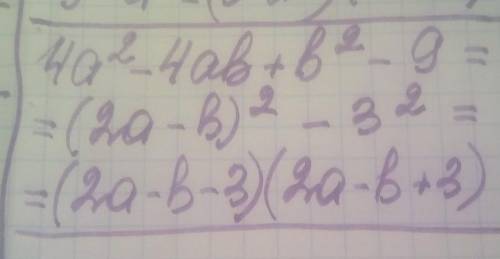 4a² - 4ab + b² - 9 =
= (2a - b)² - 3² =
= (2a - b - 3)(2a - b + 3)